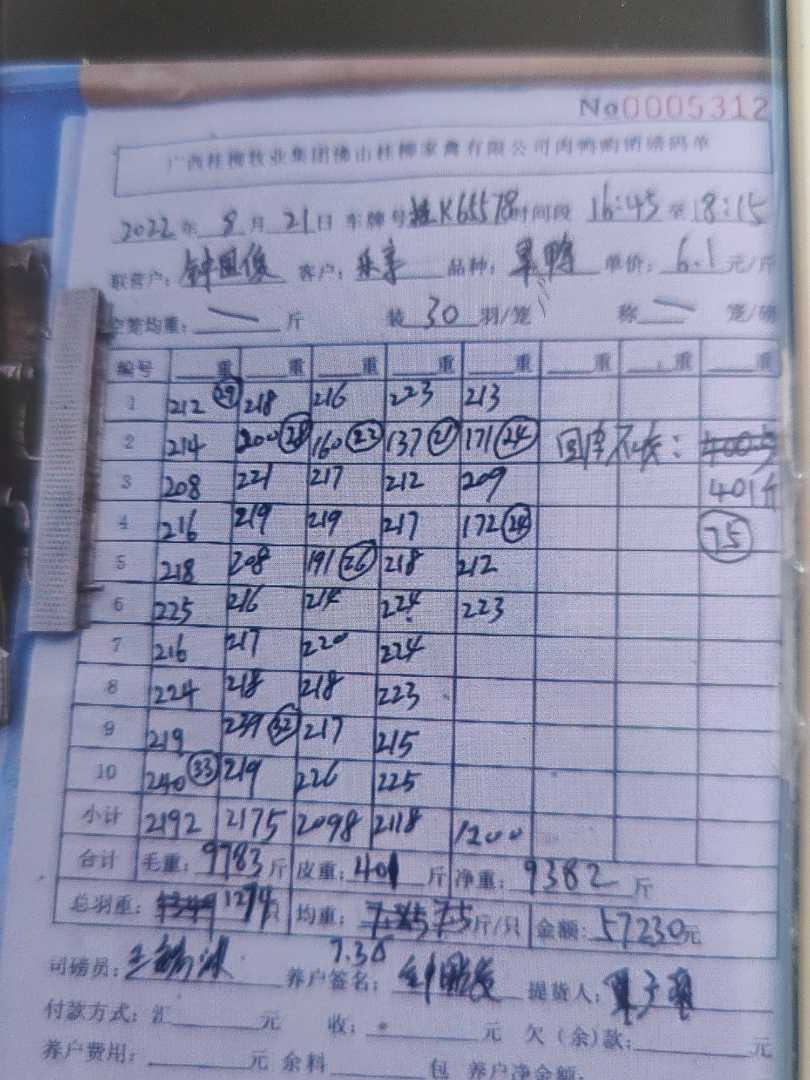 No0005312
广西桂柳牧业集团佛山桂柳家禽有限公司肉鸭购销磅码单
2022年 8月 21日 车牌号桂K65578时间段 16:45至18:15
联营户: 钟国俊 客户: 品种: 鸭 单价: 6.1元/斤
空笼均重: — 斤 装 30 羽/笼 称 — 笼/磅
编号 重 重 重 重 重 重 重 重
1 212 (29) 218 216 223 213
2 214 200 (28) 160 (22) 137 (21) 171 (24) 回 401斤 (75)
3 208 221 217 212 209
4 216 219 219 217 172 (24)
5 218 208 191 (26) 218 212
6 225 216 214 224 223
7 216 217 220 224
8 224 218 218 223
9 219 239 (32) 217 215
10 240 (33) 219 226 225
小计 2192 2175 2098 2118 1200
合计 毛重: 9783斤 皮重: 401斤 净重: 9382斤
总羽重: 1274只 均重: 7.5斤/只 金额: 57230元
7.36
司磅员: 养户签名: 提货人:
付款方式: 汇 元 收: 元 欠(余)款: 元
养户费用: 元 余料 包 养户净金额: